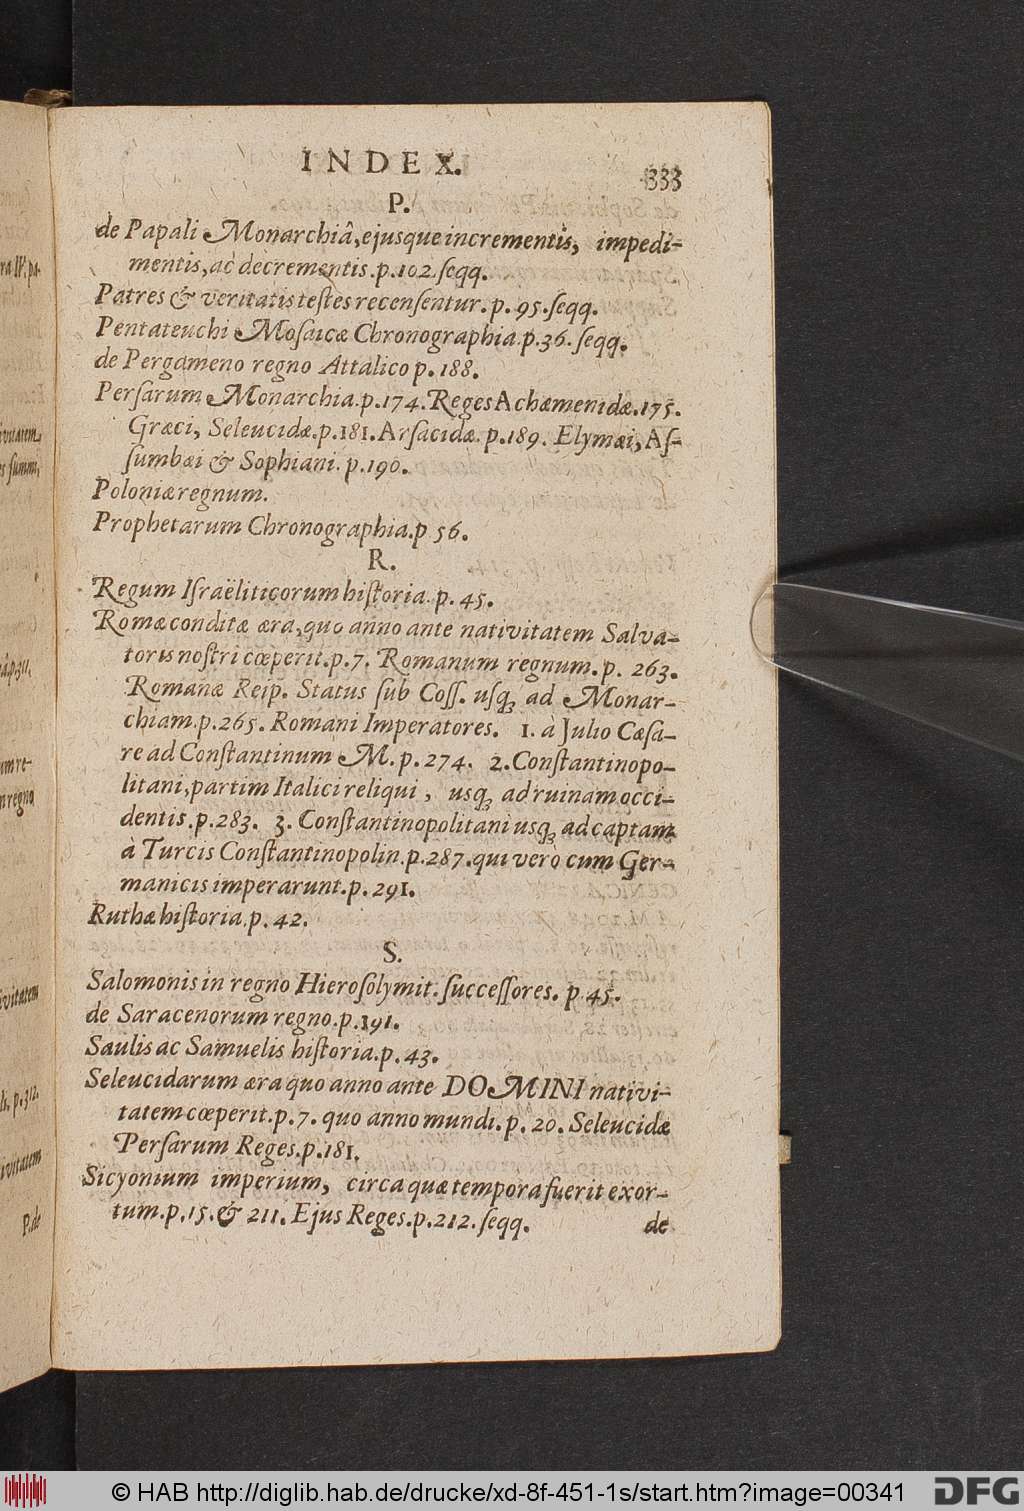 INDEX.
333
P.
de Papali Monarchiâ, ejusque incrementis, impedi-
mentis, ac decrementis. p. 102. ſeqq.
Patres & veritatis teſtes recenſentur. p. 95. ſeqq.
Pentateuchi Moſaicæ Chronographia. p. 36. ſeqq.
de Pergameno regno Attalico p. 188.
Perſarum Monarchia. p. 174. Reges Achæmenidæ. 175.
Græci, Seleucidæ. p. 181. Arſacidæ. p. 189. Elymæi, Aſ-
ſumbæi & Sophiani. p. 190.
Poloniæ regnum.
Prophetarum Chronographia. p 56.
R.
Regum Iſraëliticorum hiſtoria. p. 45.
Romæ conditæ æra, quo anno ante nativitatem Salva-
toris noſtri cœperit. p. 7. Romanum regnum. p. 263.
Romanæ Reip. Status ſub Coſſ. uſq; ad Monar-
chiam. p. 265. Romani Imperatores. 1. à Julio Cæſa-
re ad Conſtantinum M. p. 274. 2. Conſtantinopo-
litani, partim Italici reliqui, usq; ad ruinam occi-
dentis. p. 283. 3. Conſtantinopolitani usq; ad captam
à Turcis Conſtantinopolin. p. 287. qui verò cum Ger-
manicis imperarunt. p. 291.
Ruthæ hiſtoria. p. 42.
S.
Salomonis in regno Hieroſolymit. ſucceſſores. p. 45.
de Saracenorum regno. p. 191.
Saulis ac Samuelis hiſtoria. p. 43.
Seleucidarum æra quo anno ante DOMINI nativi-
tatem cœperit. p. 7. quo anno mundi. p. 20. Seleucidæ
Perſarum Reges. p. 181.
Sicyonium imperium, circa quæ tempora fuerit exor-
tum. p. 15. & 211. Ejus Reges. p. 212. ſeqq.
de
© HAB http://diglib.hab.de/drucke/xd-8f-451-1s/start.htm?image=00341
DFG